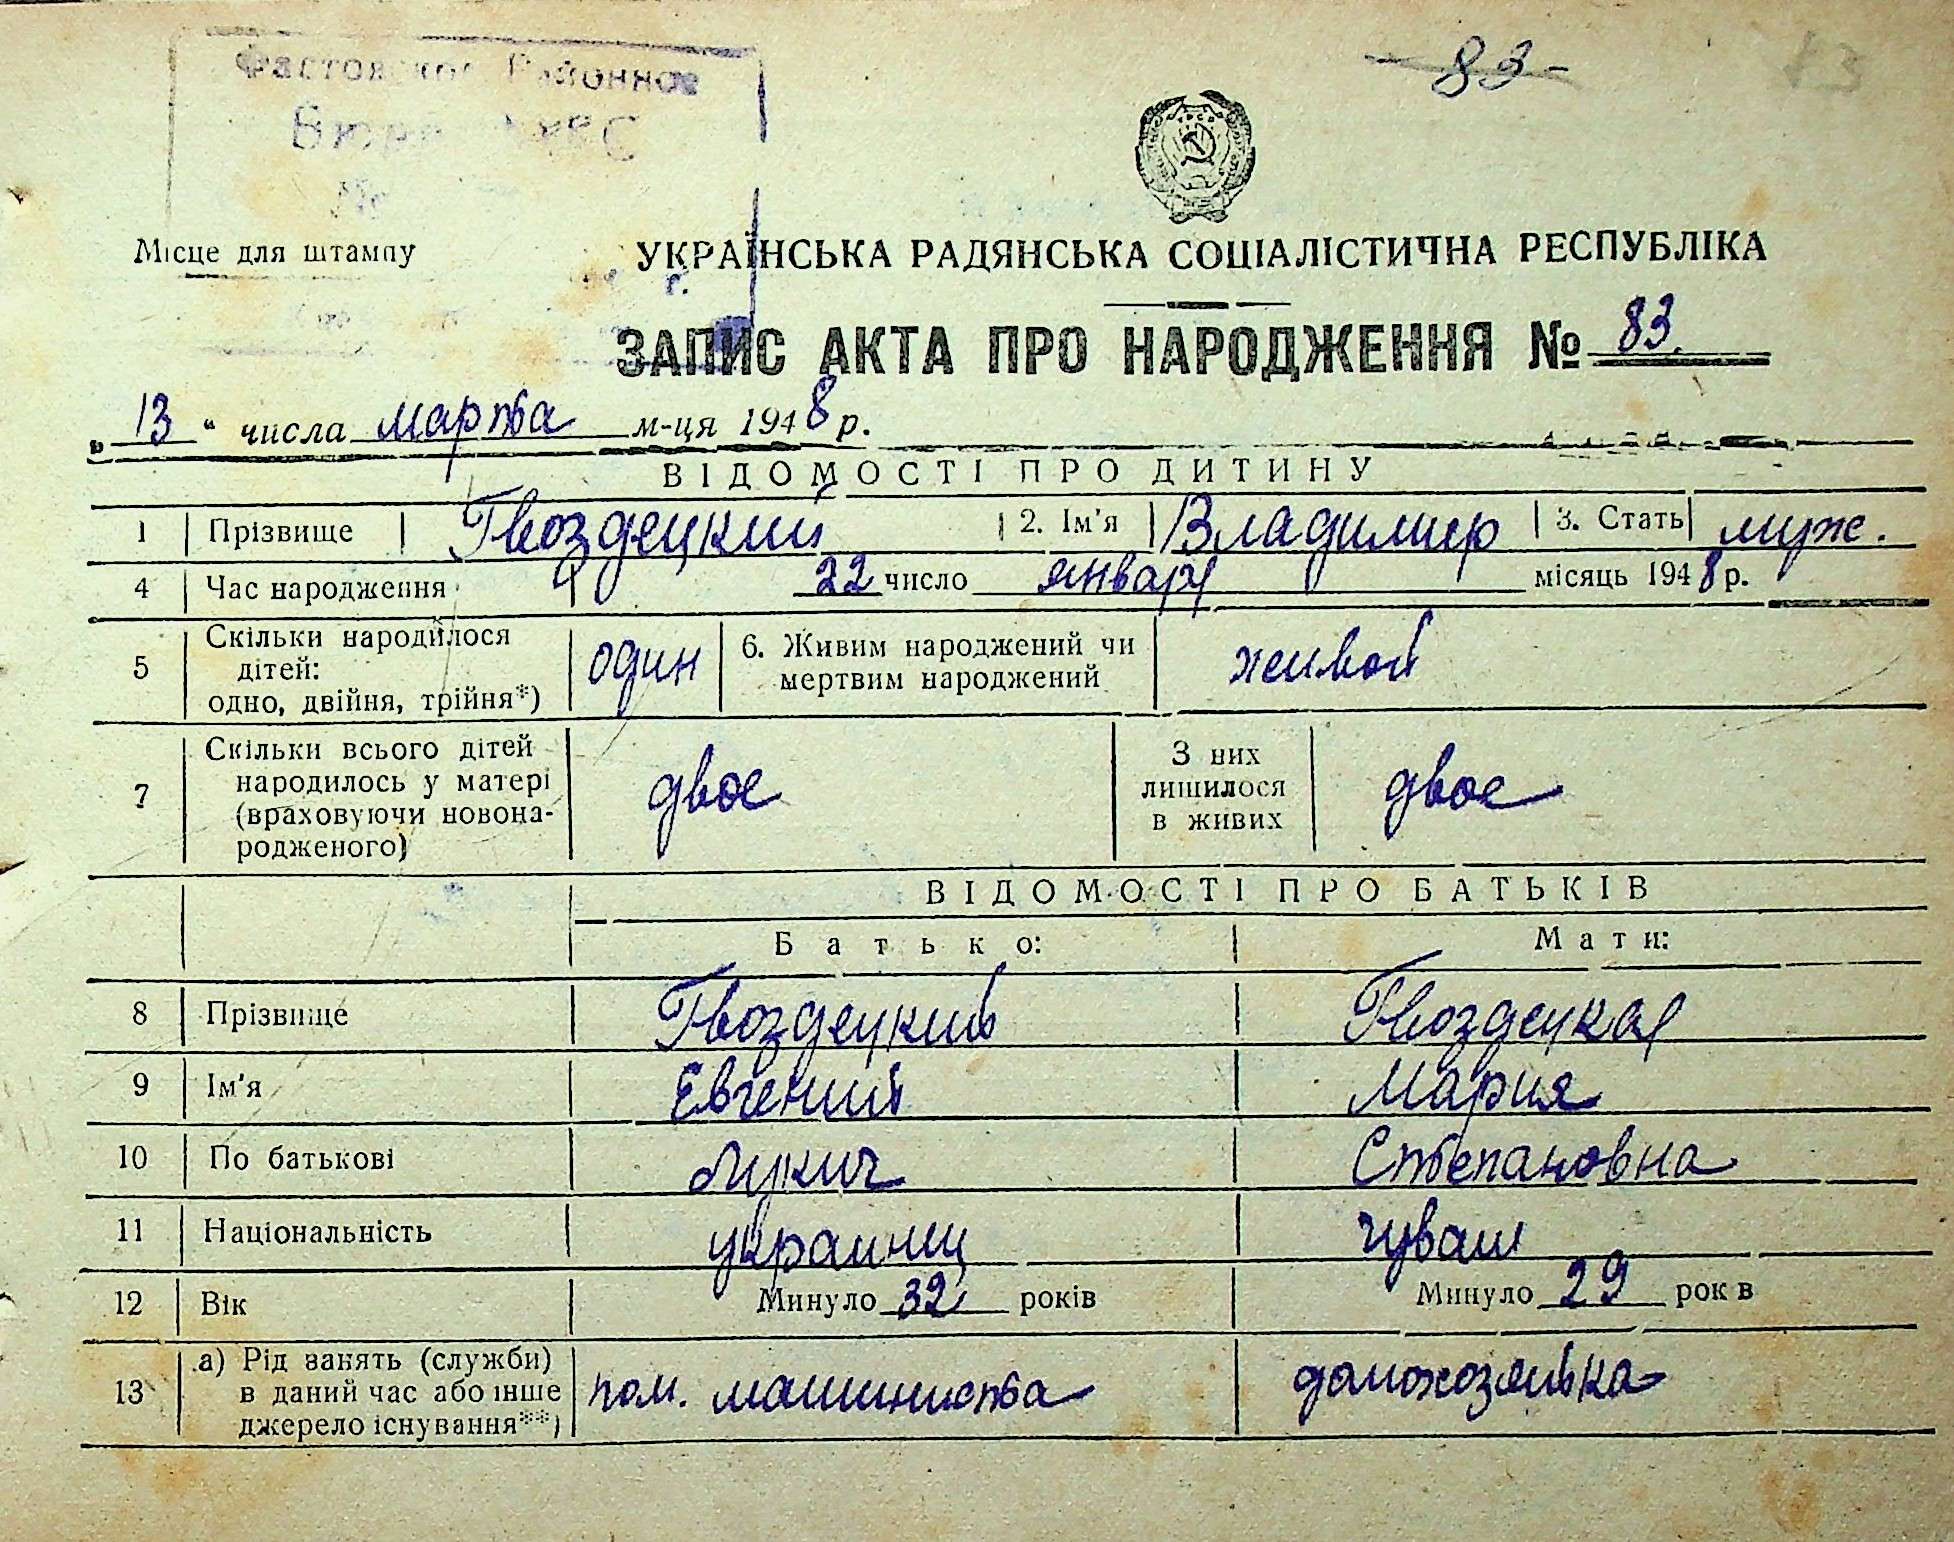 - 83 -
Районное
Бюро ЗАГС
№
Місце для штампу
УКРАЇНСЬКА РАДЯНСЬКА СОЦІАЛІСТИЧНА РЕСПУБЛІКА
г.
ЗАПИС АКТА ПРО НАРОДЖЕННЯ № 83.
„13“ числа марта м-ця 1948 р.
ВІДОМОСТІ ПРО ДИТИНУ
1 Прізвище Гвоздецкий 2. Ім'я Владимир 3. Стать муж.
4 Час народження 22 число января місяць 1948 р.
5 Скільки народилося дітей: одно, двійня, трійня*) один 6. Живим народжений чи мертвим народжений живой
7 Скільки всього дітей народилось у матері (враховуючи новонародженого) двое З них лишилося в живих двое
ВІДОМОСТІ ПРО БАТЬКІВ
Батько: Мати:
8 Прізвище Гвоздецкий Гвоздецкая
9 Ім'я Евгений Мария
10 По батькові Лукич Степановна
11 Національність украинец чуваш
12 Вік Минуло 32 років Минуло 29 рок в
13 а) Рід занять (служби) в даний час або інше джерело існування**) пом. машиниста домохозяйка